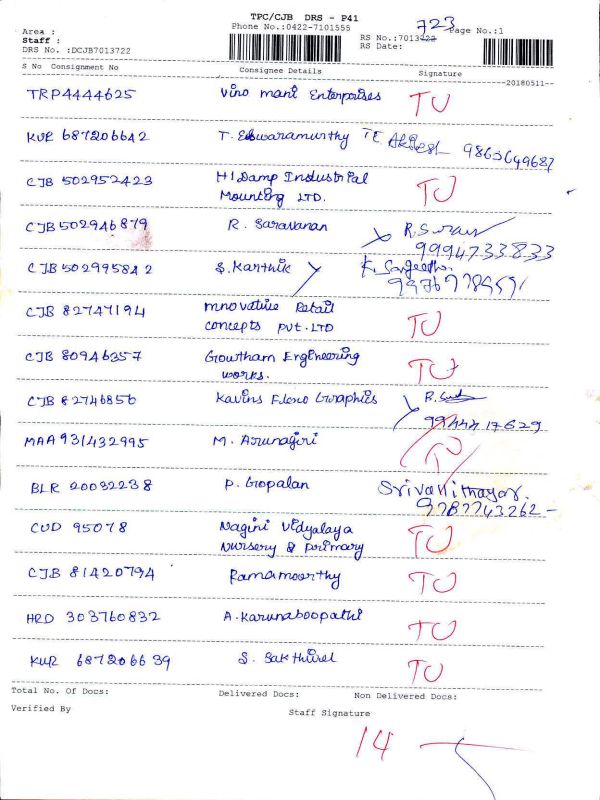 TPC/CJB DRS - P41
Area :
Phone No.:0422-7101555
723
Page No.:1
Staff :
RS No.:7013722
DRS No. :DCJB7013722
RS Date:
S No Consignment No Consignee Details Signature
20180511
TRP4444625 Vino mani Enterprises TU
KUR 687206642 T. Eswaramurthy TE Akilesh 9863649687
CJB 502952423 HI Damp Industrial
Mounting LTD. TU
CJB 502946879 R. Saravanan
9994733833
CJB 502995842 S. Karthik
CJB 82747194 mnovative Retail
concepts PVT.LTD TU
CJB 80946357 Gowtham Engineering
works. TU
CJB 82746856 Kavins Flexo Graphics
9944417629
MAA 931432995 M. Arunagiri TU
BLR 20032238 P. Gopalan Srivallinagar.
9787743262 -
CUD 95078 Nagini Vidyalaya
Nursery & primary TU
CJB 81420794 Ramamoorthy TU
HRD 303760832 A. Karunaboopathi TU
KUR 687206639 S. Sakthivel TU
Total No. Of Docs: Delivered Docs: Non Delivered Docs:
Verified By Staff Signature
14